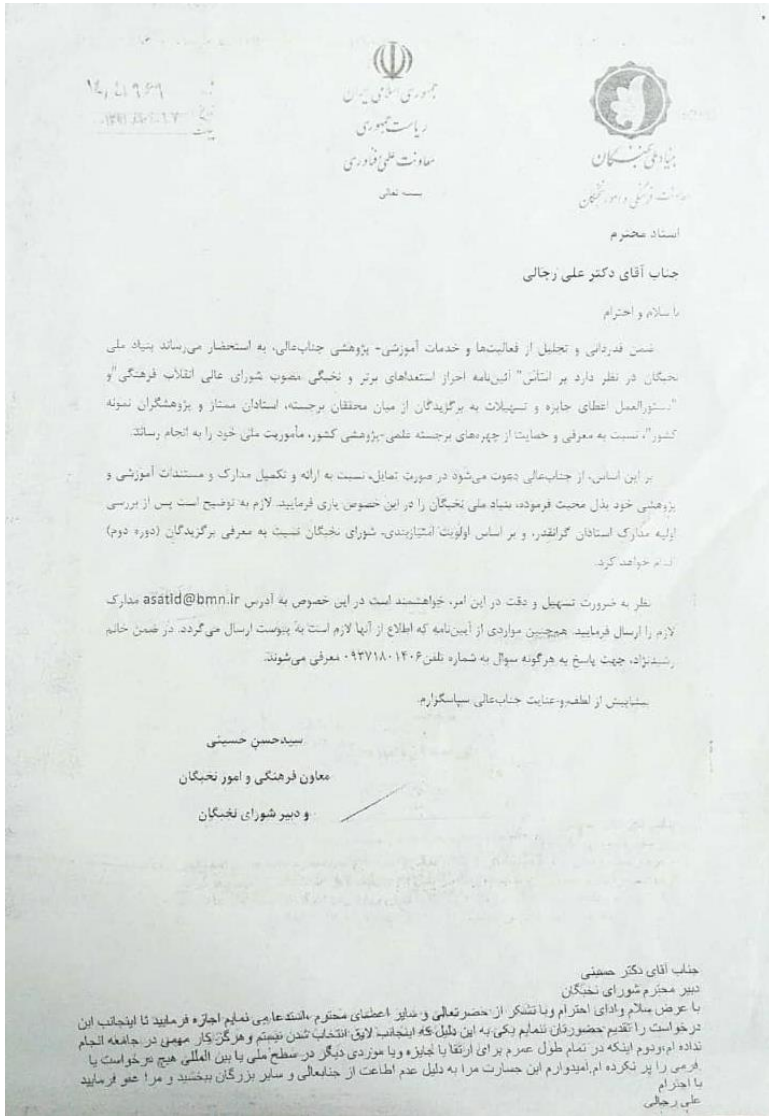 جمهوری اسلامی ایران
ریاست جمهوری
معاونت علمی و فناوری
بسمه تعالی
بنیاد ملی نخبگان
معاونت فرهنگی و امور نخبگان
استاد محترم
جناب آقای دکتر علی رجالی
با سلام و احترام
ضمن قدردانی و تجلیل از فعالیت‌ها و خدمات آموزشی- پژوهشی جناب‌عالی، به استحضار می‌رساند بنیاد ملی
نخبگان در نظر دارد بر اساس" آئین‌نامه احراز استعدادهای برتر و نخبگی مصوب شورای عالی انقلاب فرهنگی"و
"دستورالعمل اعطای جایزه و تسهیلات به برگزیدگان از میان محققان برجسته، استادان ممتاز و پژوهشگران نمونه
کشور"، نسبت به معرفی و حمایت از چهره‌های برجسته علمی-پژوهشی کشور، مأموریت ملی خود را به انجام رساند.
بر این اساس، از جناب‌عالی دعوت می‌شود در صورت تمایل، نسبت به ارائه و تکمیل مدارک و مستندات آموزشی و
پژوهشی خود بذل محبت فرموده، بنیاد ملی نخبگان را در این خصوص یاری فرمایید. لازم به توضیح است پس از بررسی
اولیه مدارک استادان گرانقدر، و بر اساس اولویت امتیازبندی، شورای نخبگان نسبت به معرفی برگزیدگان (دوره دوم)
اقدام خواهد کرد.
نظر به ضرورت تسهیل و دقت در این امر، خواهشمند است در این خصوص به آدرس asatid@bmn.ir مدارک
لازم را ارسال فرمایید. همچنین مواردی از آیین‌نامه که اطلاع از آنها لازم است به پیوست ارسال می‌گردد. در ضمن خانم
رشیدنژاد، جهت پاسخ به هرگونه سوال به شماره تلفن ۰۹۳۷۱۸۰۱۴۰۶ معرفی می‌شوند.
پیشاپیش از لطف و عنایت جناب‌عالی سپاسگزارم.
سیدحسن حسینی
معاون فرهنگی و امور نخبگان
و دبیر شورای نخبگان
جناب آقای دکتر حسینی
دبیر محترم شورای نخبگان
با عرض سلام وادای احترام وبا تشکر از حضرتعالی و سایر اعضای محترم ،استدعا می نمایم اجازه فرمایید تا اینجانب این
درخواست را تقدیم حضورتان ننمایم یکی به این دلیل که اینجانب لایق انتخاب شدن نیستم وهرگز کار مهمی در جامعه انجام
نداده ام،ودوم اینکه در تمام طول عمرم برای ارتقا یا جایزه ویا موردی دیگر در سطح ملی یا بین المللی هیچ درخواست یا
فرمی را پر نکرده ام.امیدوارم این جسارت مرا به دلیل عدم اطاعت از جنابعالی و سایر بزرگان ببخشید و مرا عفو فرمایید
با احترام
علی رجالی